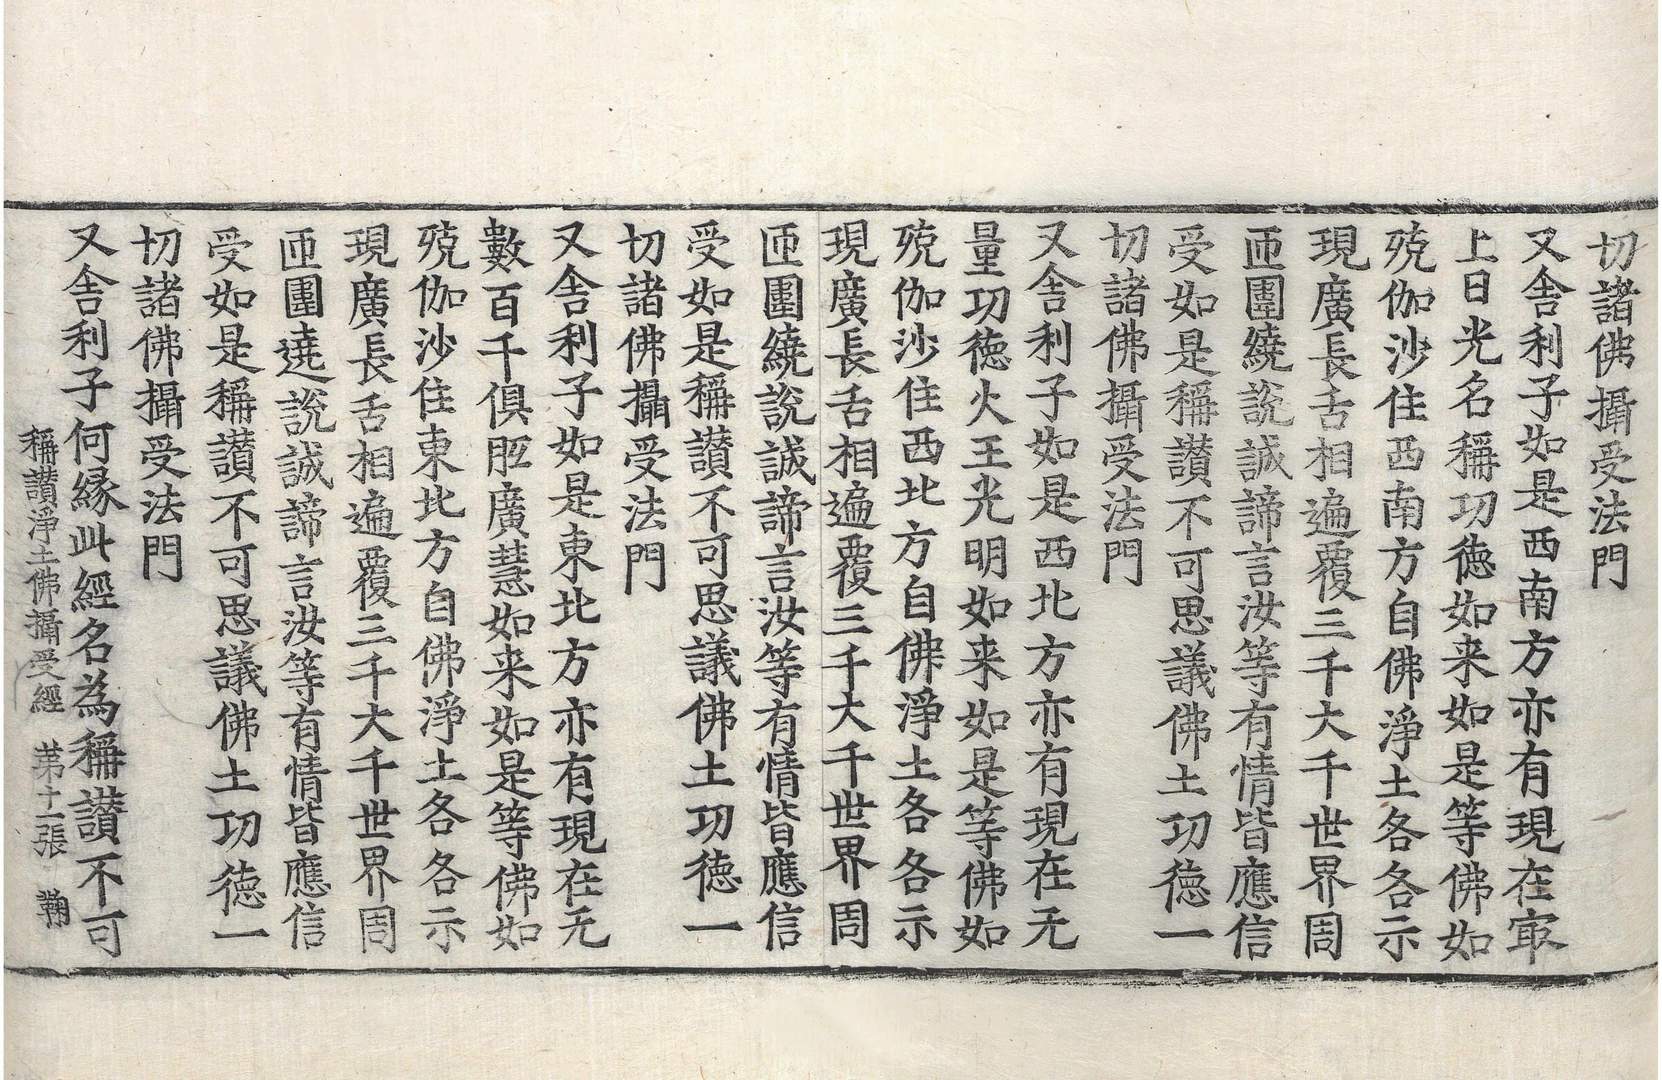 切諸佛攝受法門
又舎利子如是西南方亦有現在㝡
上日光名稱功徳如来如是等佛如
殑伽沙住西南方自佛淨土各各示
現廣長舌相遍覆三千大千世界周
匝圍繞說誠諦言汝等有情皆應信
受如是稱讃不可思議佛土功徳一
切諸佛攝受法門
又舎利子如是西北方亦有現在无
量功徳火王光明如来如是等佛如
殑伽沙住西北方自佛淨土各各示
現廣長舌相遍覆三千大千世界周
匝圍繞說誠諦言汝等有情皆應信
受如是稱讃不可思議佛土功徳一
切諸佛攝受法門
又舎利子如是東北方亦有現在无
數百千俱胝廣慧如来如是等佛如
殑伽沙住東北方自佛淨土各各示
現廣長舌相遍覆三千大千世界周
匝圍遶說誠諦言汝等有情皆應信
受如是稱讃不可思議佛土功徳一
切諸佛攝受法門
又舎利子何縁此經名為稱讃不可
稱讃淨土佛攝受經 苐十一張 鞠